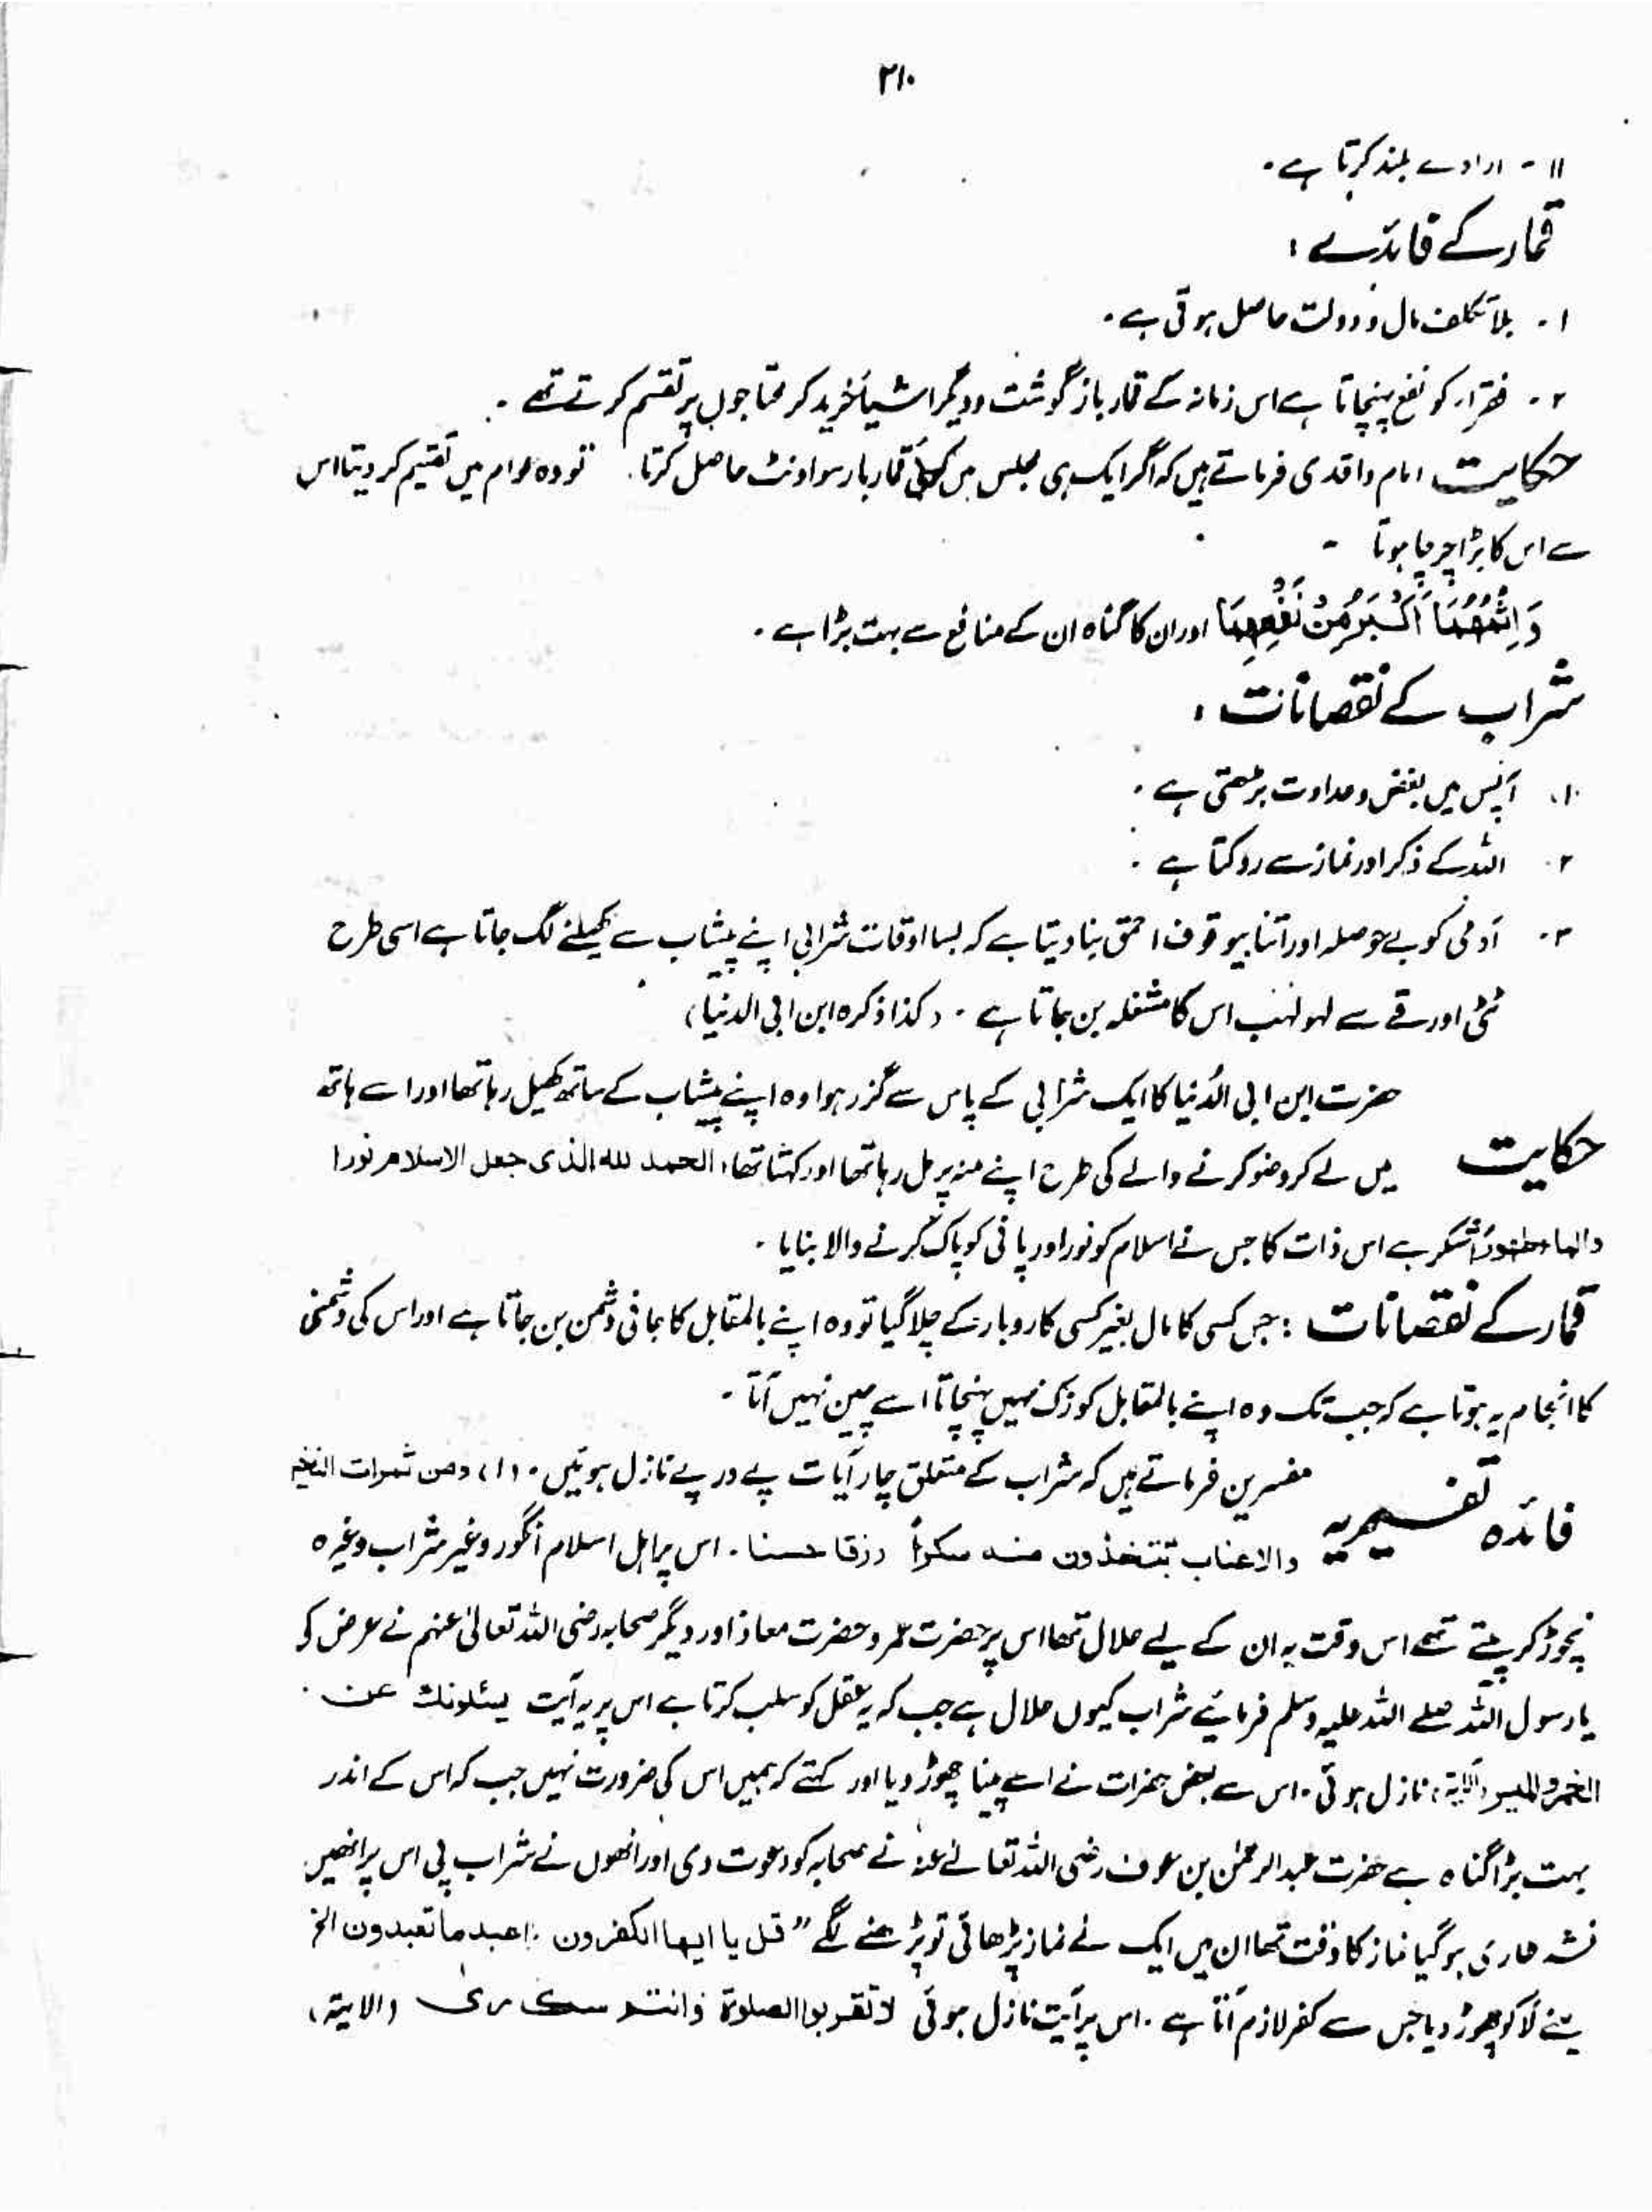 ۲۱۰
۱۱ - ارادے بلند کرتا ہے۔
قمار کے فائدے :
۱ - بلا تکلف مال و دولت حاصل ہوتی ہے۔
۲ - فقراء کو نفع پہنچاتا ہے اس زمانہ کے قمار باز گوشت و دیگر اشیأ خرید کر محتاجوں پر تقسیم کرتے تھے ۔
حکایت امام واقدی فرماتے ہیں کہ اگر ایک ہی مجلس میں کوئی قمار باز سو اونٹ حاصل کرتا، تو وہ عوام میں تقسیم کر دیتا اس
سے اس کا بڑا چرچا ہوتا -
وَاِثْمُهُمَا اَکْبَرُ مِنْ نَفْعِهِمَا اور ان کا گناہ ان کے منافع سے بہت بڑا ہے ۔
شراب کے نقصانات :
۱. آپس میں بغض و عداوت بڑھتی ہے ۔
۲. اللہ کے ذکر اور نماز سے روکتا ہے ۔
۳. آدمی کو بے حوصلہ اور اتنا بیوقوف احمق بنا دیتا ہے کہ بسا اوقات شرابی اپنے پیشاب سے کھیلنے لگ جاتا ہے اسی طرح
ٹٹی اور قے سے لہو لہب اس کا مشغلہ بن جاتا ہے ۔ (کذا ذکرہ ابن ابی الدنیا)
حضرت ابن ابی الدُنیا کا ایک شرابی کے پاس سے گزر ہوا وہ اپنے پیشاب کے ساتھ کھیل رہا تھا اور اسے ہاتھ
حکایت میں لے کر وضو کرنے والے کی طرح اپنے منہ پر مل رہا تھا اور کہتا تھا، الحمد لله الذی جعل الاسلام نورا
والماء طهورًا شکر ہے اس ذات کا جس نے اسلام کو نور اور پانی کو پاک کرنے والا بنایا ۔
قمار کے نقصانات : جس کسی کا مال بغیر کسی کاروبار کے چلا گیا تو وہ اپنے بالمقابل کا جانی دشمن بن جاتا ہے اور اس کی دشمنی
کا انجام یہ ہوتا ہے کہ جب تک وہ اپنے بالمقابل کو زک نہیں پہنچاتا اسے چین نہیں آتا ۔
مفسرین فرماتے ہیں کہ شراب کے متعلق چار آیات پے در پے نازل ہوئیں ۔ (۱) ومن ثمرات النخیل
فائدہ تفسیریہ والاعناب تتخذون منه سکرًا ورزقا حسنا ۔ اس پر اہل اسلام انگور وغیر شراب وغیرہ
نچوڑ کر پیتے تھے اس وقت یہ ان کے لیے حلال تھا اس پر حضرت عمر و حضرت معاذ اور دیگر صحابہ رضی اللہ تعالیٰ عنہم نے عرض کی
یا رسول اللہ صلے اللہ علیہ وسلم فرمائیے شراب کیوں حلال ہے جب کہ یہ عقل کو سلب کرتا ہے اس پر یہ آیت یسئلونك عن
الخمر والمیسر (الآیة) نازل ہوئی ۔ اس سے بعض حضرات نے اسے پینا چھوڑ دیا اور کہتے کہ ہمیں اس کی ضرورت نہیں جب کہ اس کے اندر
بہت بڑا گناہ ہے حضرت عبد الرحمٰن بن عوف رضی اللہ تعالےٰ عنہ نے صحابہ کو دعوت دی اور انھوں نے شراب پی اس پر انھیں
نشہ طاری ہو گیا نماز کا وقت تھا ان میں ایک نے نماز پڑھائی تو پڑھنے لگے "قل یا ایها الکفرون . اعبد ما تعبدون الخ
یعنے لا کو چھوڑ دیا جس سے کفر لازم آتا ہے ۔ اس پر آیت نازل ہوئی لا تقربوا الصلوة وانتم سکارٰی (الایة)